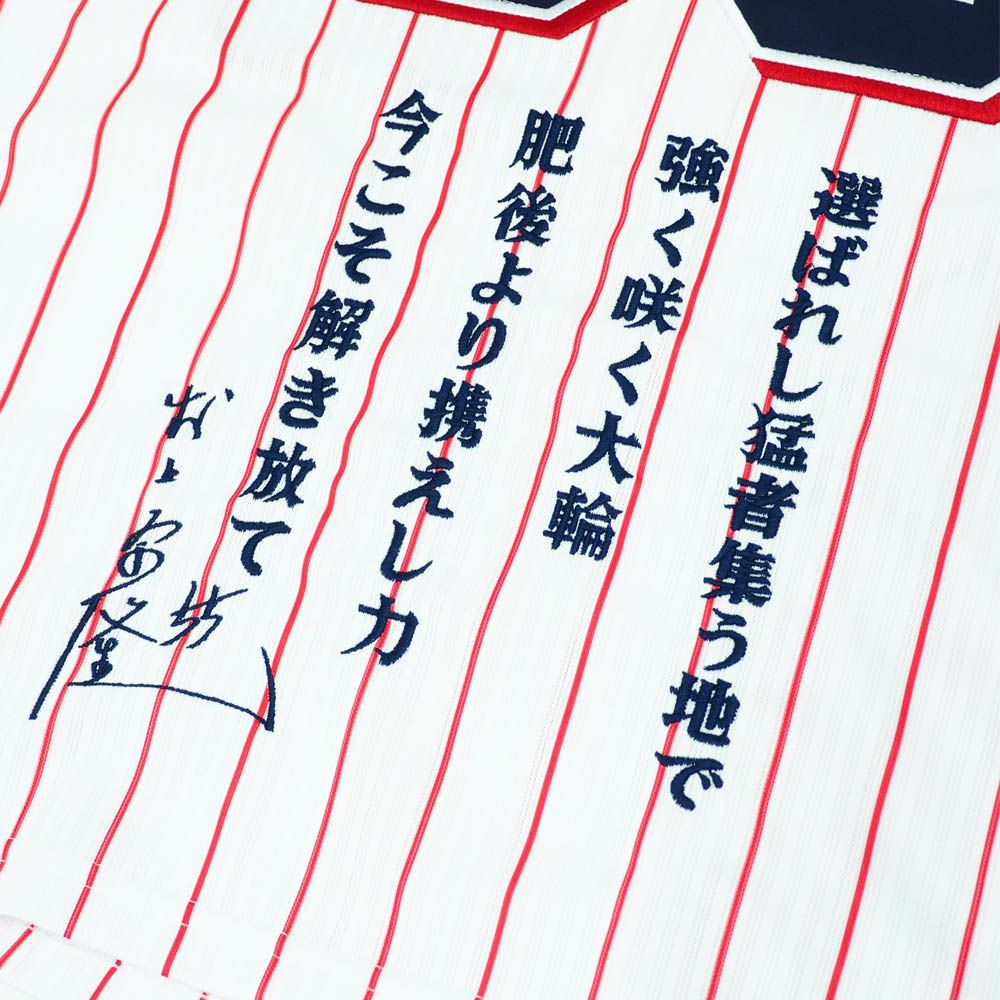 選ばれし猛者集う地で
強く咲く大輪
肥後より携えし力
今こそ解き放て